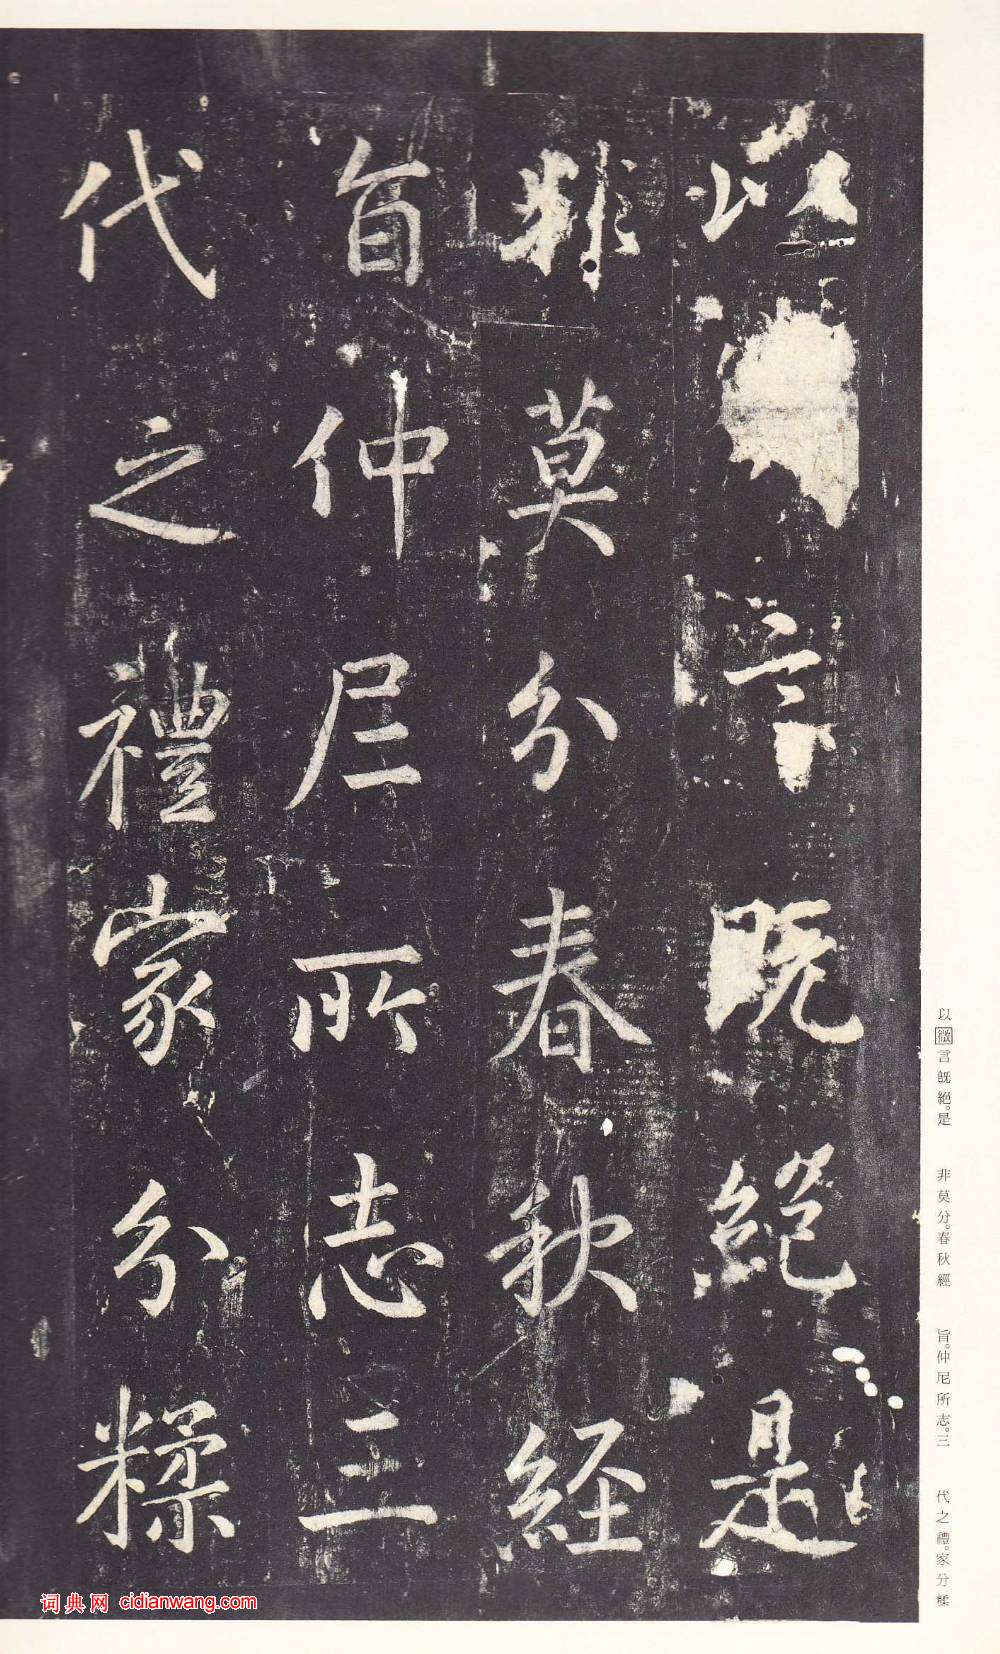 以言既絕是
非莫分春秋経
旨仲尼所志三
代之禮家分糅
以微言既絕。是
非莫分。春秋經
旨。仲尼所志。三
代之禮。家分糅
词典网 cidianwang.com